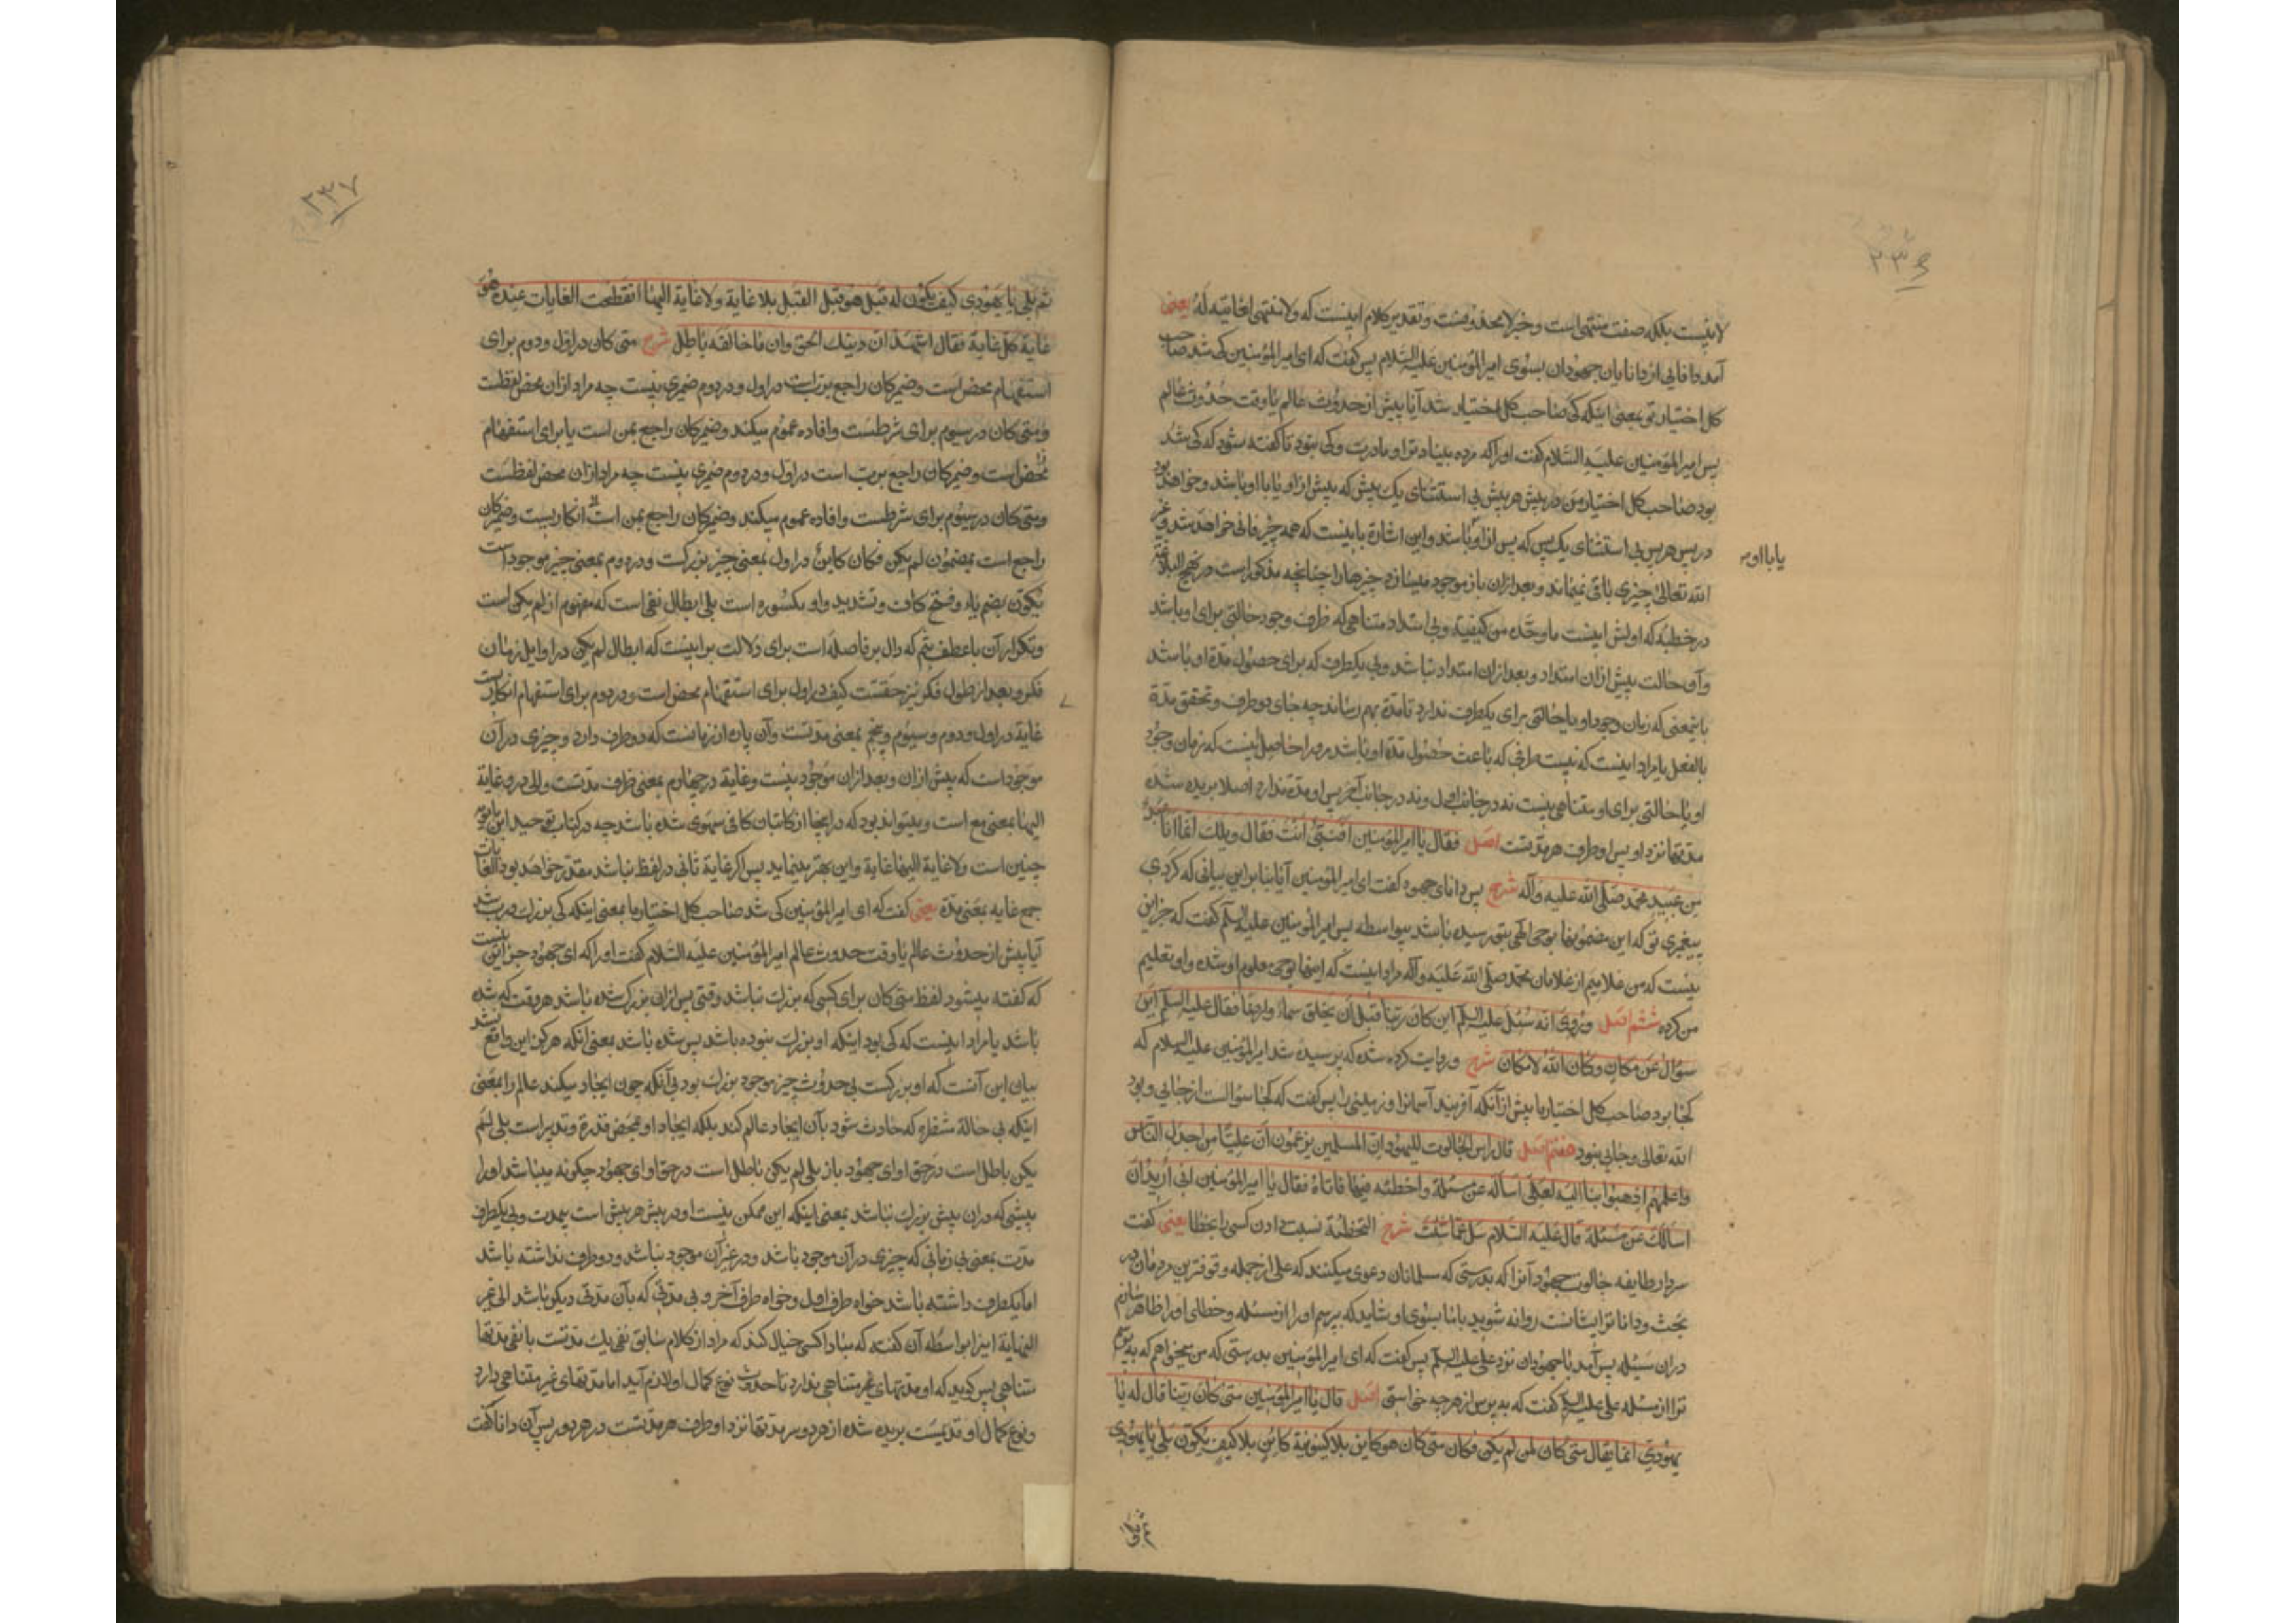 ۲۳۶
لا نیست بلکه صفت منتهی است و خبر لا محذوفست و تقدیر کلام اینست که ولا منتهی لغایتیه له یعنی
آمد دانایی از دانایان جهودان بسوی امیر المؤمنین علیه السلام پس گفت که ای امیر المؤمنین کی شد صاحب
کل اختیار تو بمعنی اینکه کی صاحب کل اختیار شد آیا پیش از حدوث عالم یا وقت حدوث عالم
پس امیر المؤمنین علیه السلام گفت او را که مرده بیناد ترا و مادرت و کی نبود تا گفته شود که کی شد
بود صاحب کل اختیار من در پیش هر پیش بی استثنای یک پیش که پیش از او یا با او باشد و خواهد بود
در پس هر پس بی استثنای یک پس که پس از او باشد و این اشارة باینست که همه چیز فانی خواهد شد و غیر
یا با او
الله تعالی چیزی باقی نمیماند و بعد از ان باز موجود میسازد چیزها را چنانچه مذکور است در نهج البلاغة
در خطبه که اولش اینست ما وحده من کیفیه و بی امتداد متناهی که ظرف وجود حالتی برای او باشد
و آن حالت پیش از ان امتداد و بعد از ان امتداد نباشد و بی یکطرف که برای حصول مدة او باشد
باینمعنی که زمان وجود او یا حالتی برای یکطرف ندارد تا مدة بهم رساند چه جای دو طرف و تحقق مدة
بالفعل یا مراد اینست که نیست طرفی که باعث حصول مدة او باشد مراد حاصل اینست که زمان وجود
او یا حالتی برای او متناهی نیست نه در جانب اول و نه در جانب آخر پس او مدة ندارد اصلا بریده شده
مدتها نزد او پس او طرف هر مدتست اصل فقال یا امیر المؤمنین افنبیّ انت فقال ویلک انما انا عبد
من عبید محمد صلی الله علیه وآله شرح پس دانای جهود گفت ای امیر المؤمنین آیا بنا براین بیانی که کردی
پیغمبری تو که این مضمونها بوحی الهی بتو رسیده باشد بیواسطه پس امیر المؤمنین علیه السلم گفت که جز این
نیست که من غلامیم از غلامان محمد صلی الله علیه وآله مراد اینست که اینها بوحی معلوم او شده و او تعلیم
من کرده ششم اصل وروی انه سئل علیه السلم این کان ربنا قبل ان یخلق سماء وارضا فقال علیه السلم این
سؤال عن مکان وکان الله لا مکان شرح و روایت کرده شده که پرسیده شد امیر المؤمنین علیه السلام که
کجا بود صاحب کل اختیار ما پیش از آنکه آفریند آسمانرا و زمینی را پس گفت که کجا سؤالست از جایی و بود
الله تعالی و جایی نبود هفتم اصل قال راس الجالوت للیهود ان المسلمین یزعمون ان علیّا من اجدل الناس
واعلمهم اذهبوا بنا الیه لعلی اساله عن مسئلة واخطئه فیها فاتاه فقال یا امیر المؤمنین انی ارید ان
اسالک عن مسئلة قال علیه السلام سل عما شئت شرح التخطئة نسبت دادن کسی را بخطا یعنی گفت
سردار طایفه جالوت جهود آنرا که بدرستی که مسلمانان دعوی میکنند که علی از جمله و قوفترین مردمان در
بحث و دانا ترایشانست روانه شوید با ما بسوی او شاید که پرسم او را از مسئله و خطای او را ظاهر سازم
دران مسئله پس آمد با جهودان نزد علی علیه السلم پس گفت که ای امیر المؤمنین بدرستی که من میخواهم که بپرسم
ترا از مسئله علی علیه السلم گفت که بپرس از هرچه خواستی اصل قال یا امیر المؤمنین متی کان ربنا قال له یا
یهودی انما یقال متی کان لمن لم یکن فکان متی کان هو کاین بلا کینونیة کائن بلا کیف یکون بلی یا یهودی
۲۳۷
ثم بلی یا یهودی کیف یکون له قبل هو قبل القبل بلا غایة ولا غایة الیها انقطعت الغایات عنده هو
غایة کل غایة فقال اشهد ان دینک الحق وان ما خالفه باطل شرح متی کان در اول و دوم برای
استفهام محض است و ضمیر کان راجع بربّ است در اول و در دوم ضمیری نیست چه مراد ازان محض لفظست
و متی کان در سیوم برای شرطست و افاده عموم میکند و ضمیر کان راجع بمن است یا برای استفهام
محض است و ضمیر کان راجع برب است در اول و در دوم ضمیری نیست چه مراد ازان محض لفظست
و متی کان در سیوم برای شرطست و افاده عموم میکند و ضمیر کان راجع بمن است انکاریست و ضمیر کان
راجع است بمضمون لم یکن فکان کاین در اول بمعنی چیز بزرگست و در دوم بمعنی چیز موجود است
یکون بضم یاء و فتح کاف و تشدید واو مکسوره است بلی ابطال نفی است که مفهوم از لم یکن است
و تکرار آن با عطف بثم که دال بر فاصله است برای دلالت بر اینست که ابطال لم یکن در اوایل زمان
فکر و بعد از طول فکر نیز حقست کیف در اول برای استفهام محض است و در دوم برای استفهام انکاریست
غایة در اول و دوم و سیوم و پنجم بمعنی مدتست و آن پاره از زمانست که دو طرف دارد و چیزی در آن
موجود است که پیش ازان و بعد ازان موجود نیست و غایة در چهارم بمعنی طرف مدتست و الی در و غایة
الیها بمعنی مع است و میتواند بود که در اینجا از کاتبان کافی سهوی شده باشد چه در کتاب توحید ابن بابویه
چنین است ولا غایة الیها غایة و این بهتر مینماید پس اگر غایة ثانی در لفظ نباشد مقدر خواهد بود الغایات
جمع غایه بمعنی مدة یعنی گفت که ای امیر المؤمنین کی شد صاحب کل اختیار ما بمعنی اینکه کی بزرگ و رب شد
آیا پیش از حدوث عالم یا وقت حدوث عالم امیر المؤمنین علیه السلام گفت او را که ای جهود جز این نیست
که گفته میشود لفظ متی کان برای کسی که بزرگ نباشد وقتی پس ازان بزرگ شده باشد هر وقت که شده
باشد یا مراد اینست که کی بود اینکه او بزرگ نبوده باشد پس شده باشد بمعنی آنکه هرگز این واقع نشد
بیان این آنست که او بزرگست بی حدوث چیز موجود بزرگ بود بی آنکه چون ایجاد میکند عالم را بمعنی
اینکه بی حالة منتظره که حادث شود بآن ایجاد عالم کند بلکه ایجاد او بمحض قدرة و تدبیر است بلی لم
یکن باطل است در حق او ای جهود باز بلی لم یکن باطل است در حق او ای جهود چگونه میباشد او را
پیشی که دران پیش بزرگ نباشد بمعنی اینکه این ممکن نیست او در پیش هر پیش است بیمدت و بی یکطرف
مدت بمعنی بی زمانی که چیزی در آن موجود باشد و در غیر آن موجود نباشد و دو طرف نداشته باشد
اما یکطرف داشته باشد خواه طرف اول و خواه طرف آخر و بی مدتی که بآن مدتی دیگر باشد الی غیر
النهایة اینرا بواسطه آن گفته که مبادا کسی خیال کند که مراد از کلام سابق نفی یک مدتست با نفی مدتها
متناهی پس گوید که او مدتهای غیر متناهی ندارد تا حدوث نوع کمال او لازم آید اما مدتهای غیر متناهی دارد
و نوع کمال او قدیمست بریده شده از هر دو سر مدتها نزد او و طرف هر مدتست در هر دو سر پس آن دانا گفت